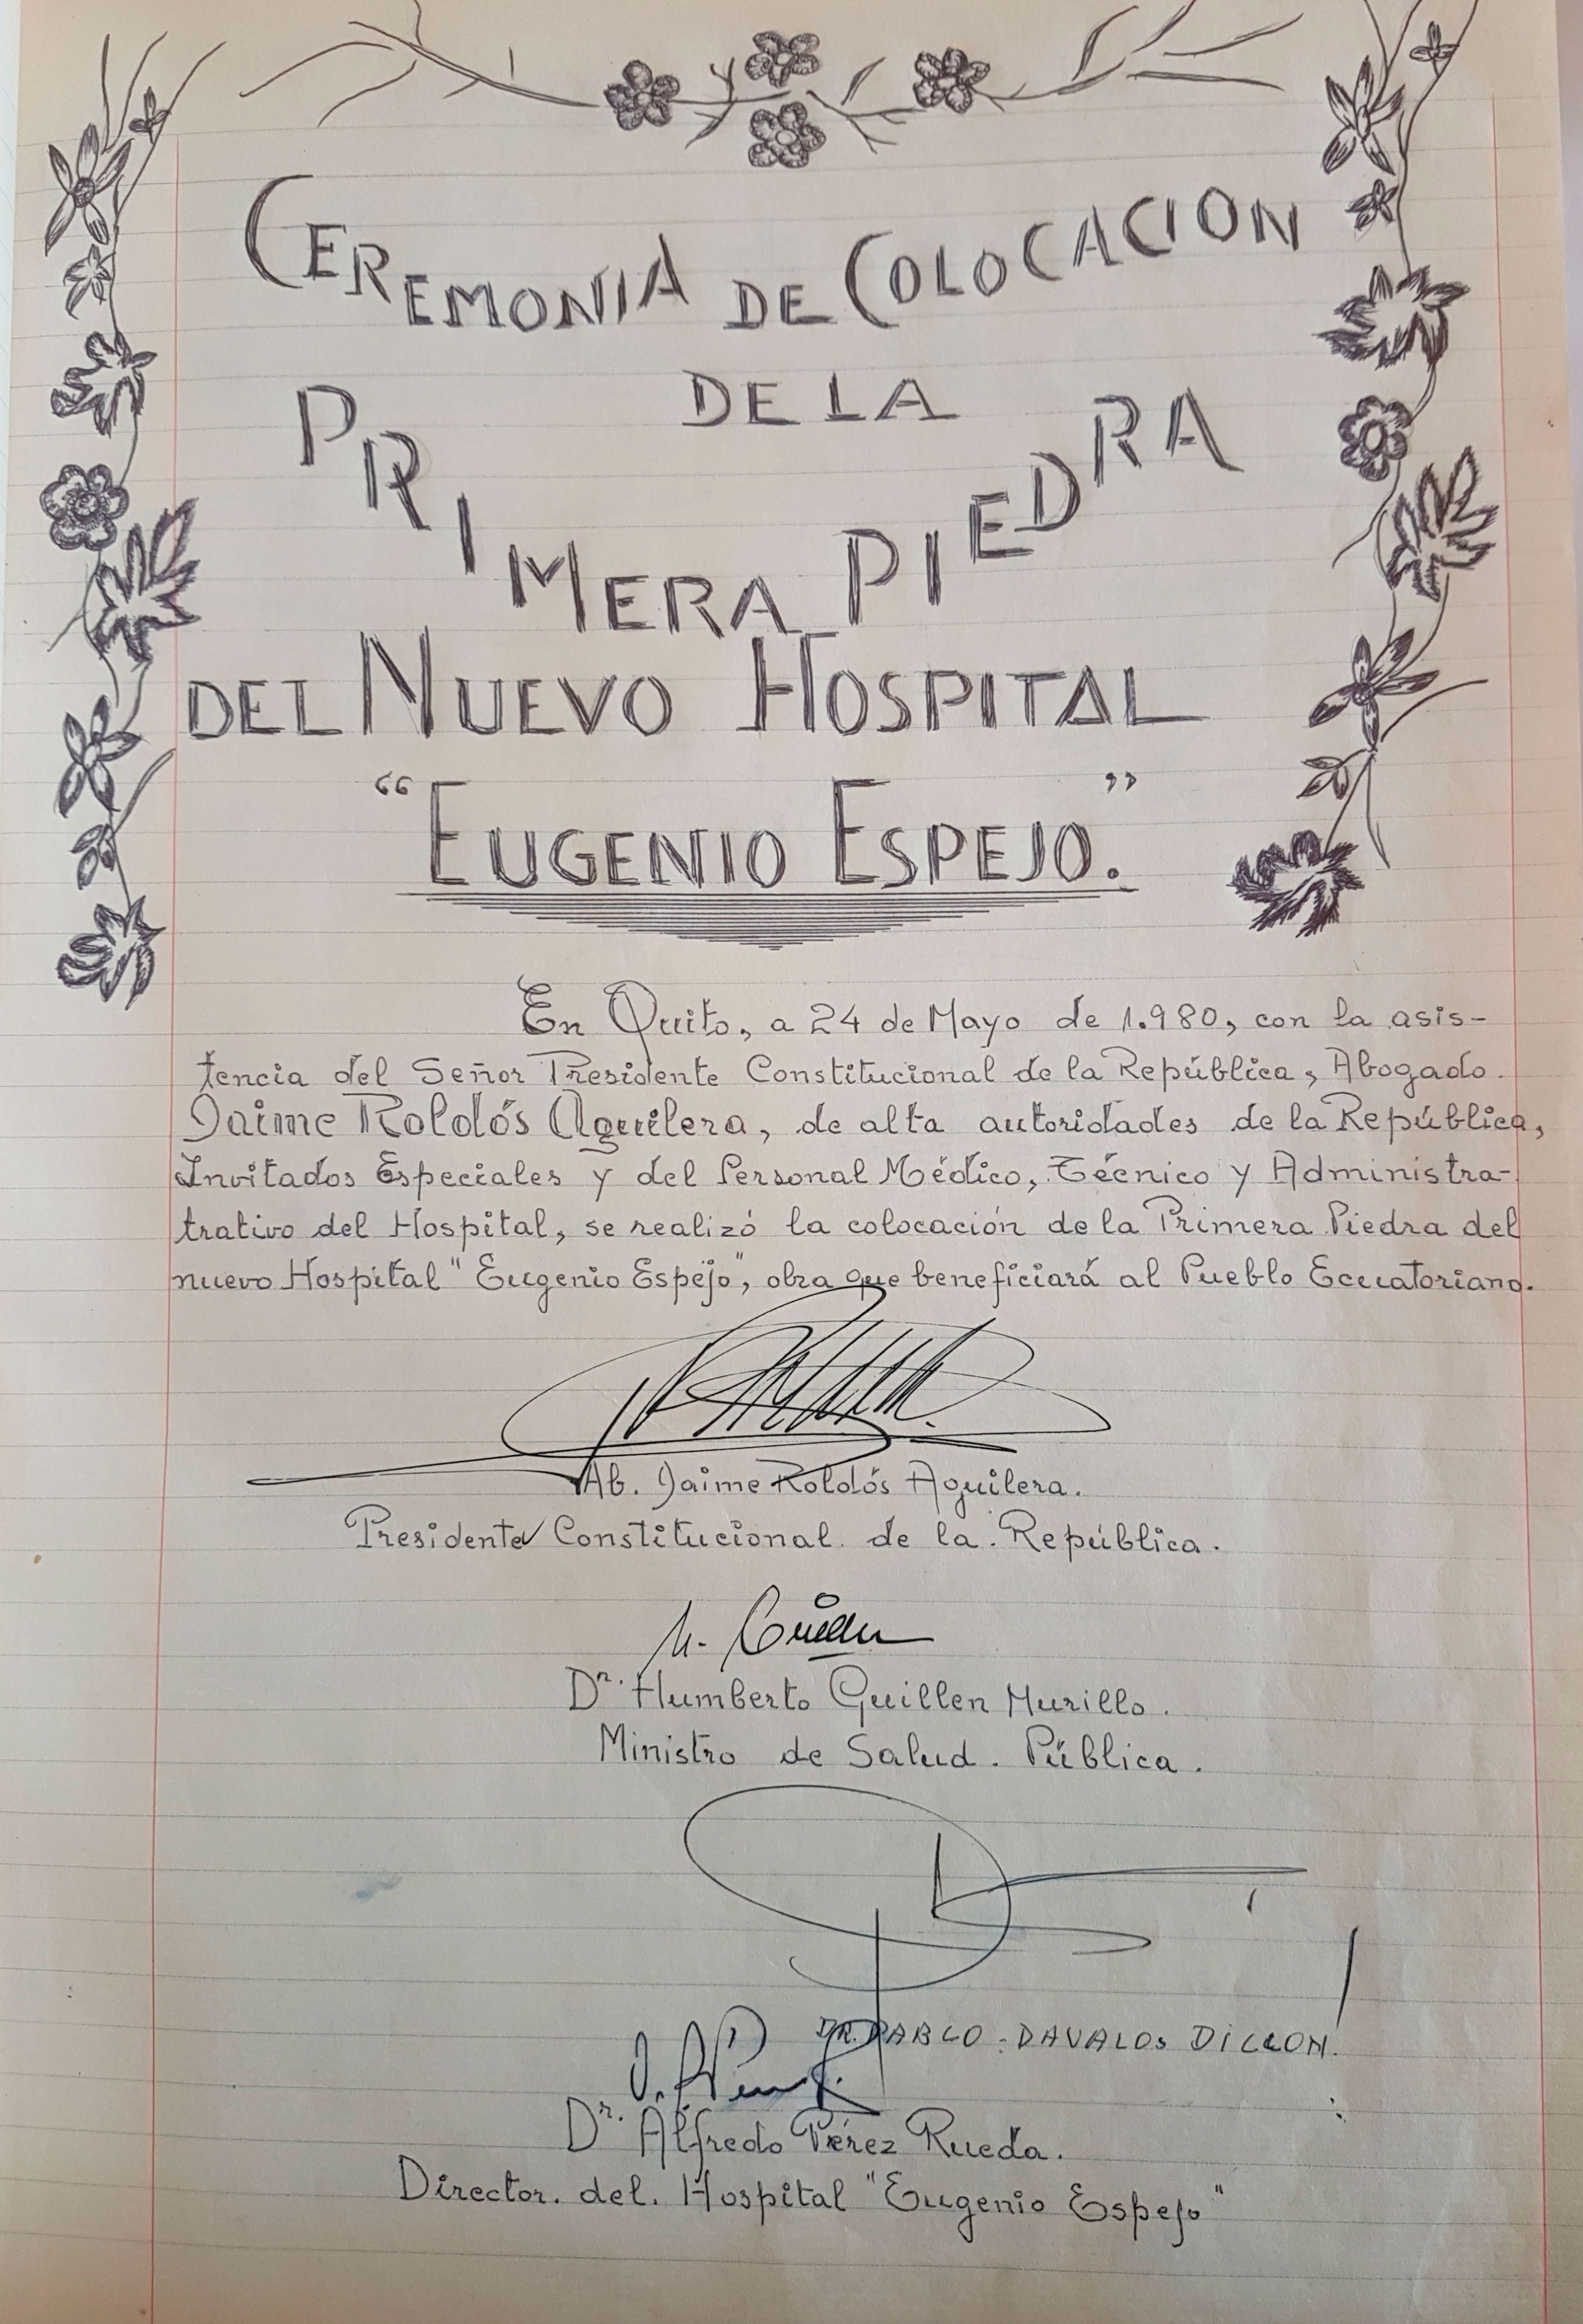 CEREMONIA DE COLOCACION
DE LA
PRIMERA PIEDRA
DEL NUEVO HOSPITAL
“EUGENIO ESPEJO.”
En Quito, a 24 de Mayo de 1.980, con la asis-
tencia del Señor Presidente Constitucional de la República, Abogado.
Jaime Roldós Aguilera, de alta autoridades de la República,
Invitados Especiales y del Personal Médico, Técnico y Administra-
trativo del Hospital, se realizó la colocación de la Primera Piedra del
nuevo Hospital "Eugenio Espejo", obra que beneficiará al Pueblo Ecuatoriano.
Ab. Jaime Roldós Aguilera.
Presidente Constitucional. de la. República.
Dr. Humberto Guillen Murillo.
Ministro de Salud. Pública.
DR. PABLO DAVALOS DILLON.
Dr. Alfredo Pérez Rueda.
Director. del. Hospital "Eugenio Espejo"